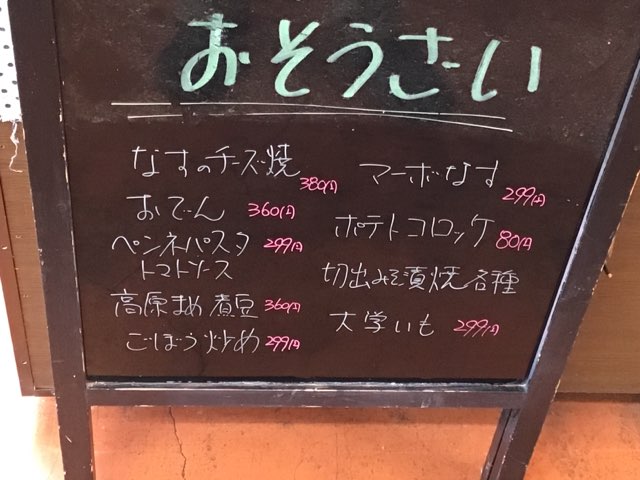 おそうざい
なすのチーズ焼 380円
おでん 360円
ペンネパスタ 299円
トマトソース
高原まめ煮豆 360円
ごぼう炒め 299円
マーボなす 299円
ポテトコロッケ 80円
切出みそ漬焼各種
大学いも 299円